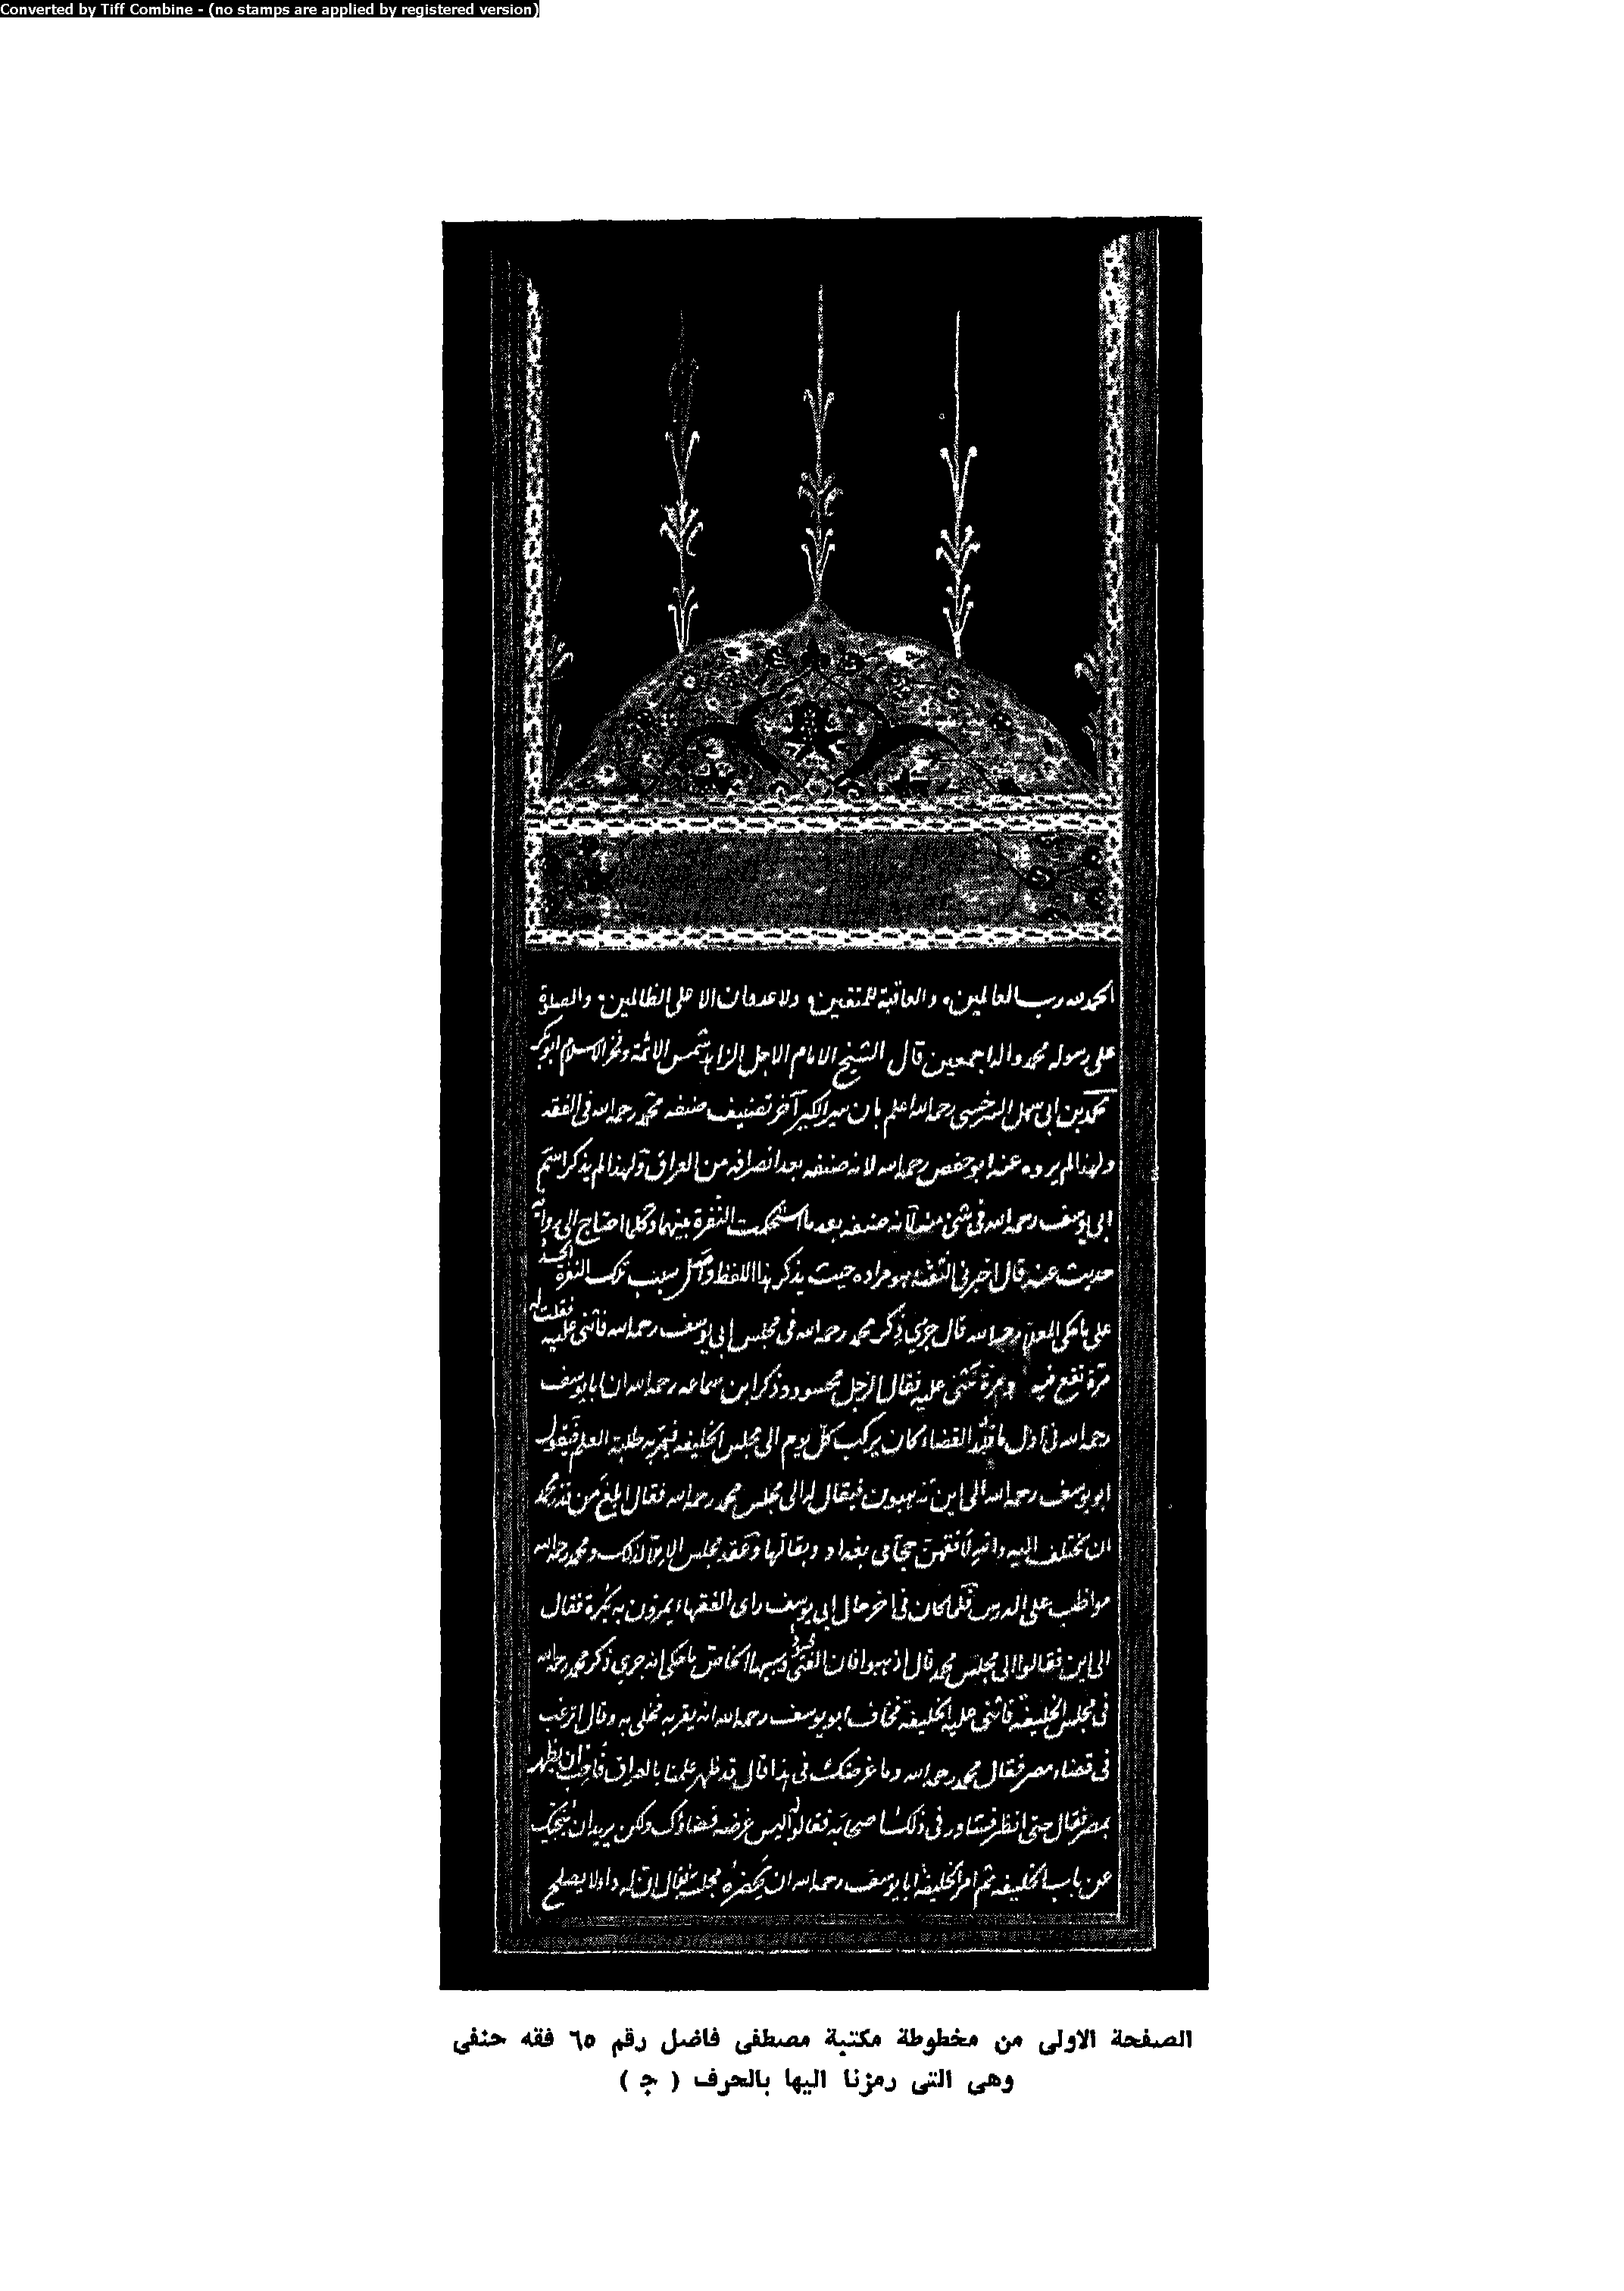 Converted by Tiff Combine - (no stamps are applied by registered version)
الحمد لله رب العالمين والعاقبة للمتقين ولا عدوان الا على الظالمين والصلوة
على رسوله محمد واله اجمعين قال الشيخ الامام الاجل الزاهد شمس الائمة وفخر الاسلام ابو بكر
محمد بن ابى سهل السرخسى رحمه الله اعلم بان سير الكبير آخر تصنيف صنفه محمد رحمه الله فى الفقه
ولهذا لم يروه عنه ابو حفص رحمه الله لانه صنفه بعد انصرافه من العراق ولهذا لم يذكر اسم
ابى يوسف رحمه الله فى شئ منه لانه صنفه بعد ما استحكمت النفرة بينهما وكلما احتاج الى رواية
حديث عنه قال اخبرنى الثقة هو مراده حيث يذكر هذا اللفظ واصل سبب تلك النفرة الحسد
على ما حكى المعلا رحمه الله قال جرى ذكر محمد رحمه الله فى مجلس ابى يوسف رحمه الله فاثنى عليه فقلت له
مرة تقع فيه ومرة تثنى عليه فقال الرجل محسود وذكر ابن سماعه رحمه الله ان ابا يوسف
رحمه الله فى اول ما قلد القضاء كان يركب كل يوم الى مجلس الخليفه فيمر به طلبة العلم فيقول
ابو يوسف رحمه الله الى اين تذهبون فيقال له الى مجلس محمد رحمه الله فقال ابلغ من قدر محمد
ان يختلف اليه والله لافقهن حجامى بغداد وبقاليها وعقد مجلس الاملاء لذلك ومحمد رحمه الله
مواظب على الدرس فلما كان فى اخر حال ابى يوسف راى الفقهاء يمرون به بكرة فقال
الى اين فقالوا الى مجلس محمد قال اذهبوا فان الفتى محسود وسببها الخاص ما حكى انه جرى ذكر محمد رحمه الله
فى مجلس الخليفة فاثنى عليه الخليفة فخاف ابو يوسف رحمه الله انه يقربه فخلى به وقال اترغب
فى قضاء مصر فقال محمد رحمه الله وما غرضك فى هذا قال قد ظهر علمنا بالعراق فاحب ان يظهر
بمصر فقال حتى انظر فشاور فى ذلك اصحابه فقالوا ليس غرضه قضاؤك ولكن يريد ان ينحيك
عن باب الخليفه ثم امر الخليفة ابا يوسف رحمه الله ان يحضره مجلسه فقال ان له داء لا يصلح
الصفحة الاولى من مخطوطة مكتبة مصطفى فاضل رقم ٦٥ فقه حنفى
وهى التى رمزنا اليها بالحرف ( ج )